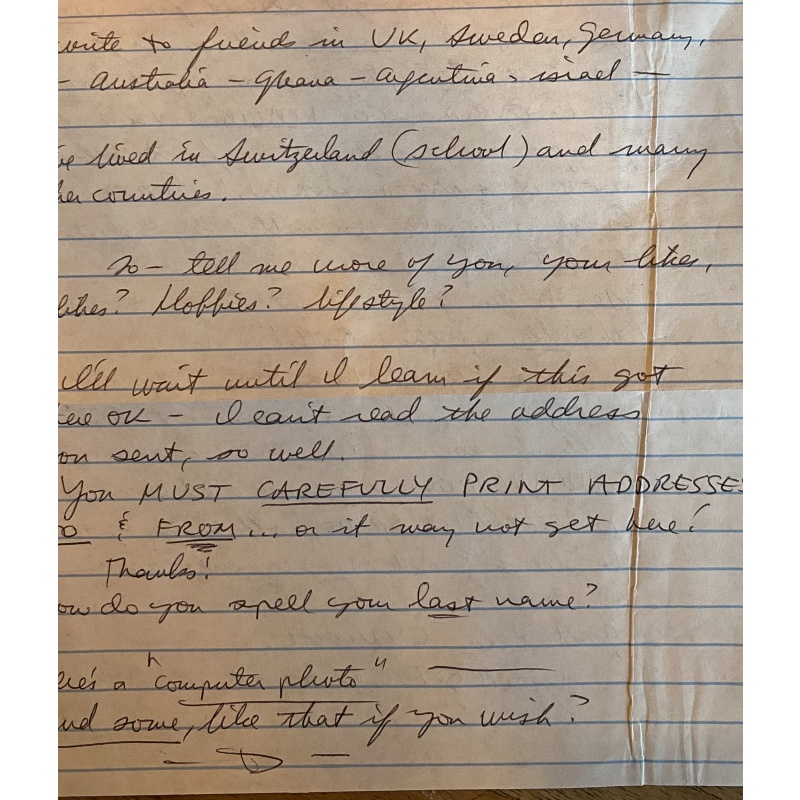 write to friends in UK, Sweden, Germany,
- Australia - Ghana - Argentina, Israel -
've lived in Switzerland (school) and many
her countries.
So - tell me more of you, your likes,
likes? Hobbies? lifestyle?
I'll wait until I learn if this got
ere OK - I can't read the address
ou sent, so well.
You MUST CAREFULLY PRINT ADDRESSES
O & FROM... or it may not get here!
Thanks!
ow do you spell your last name?
ere's a "computer photo"
nd some, like that if you wish?
- D -